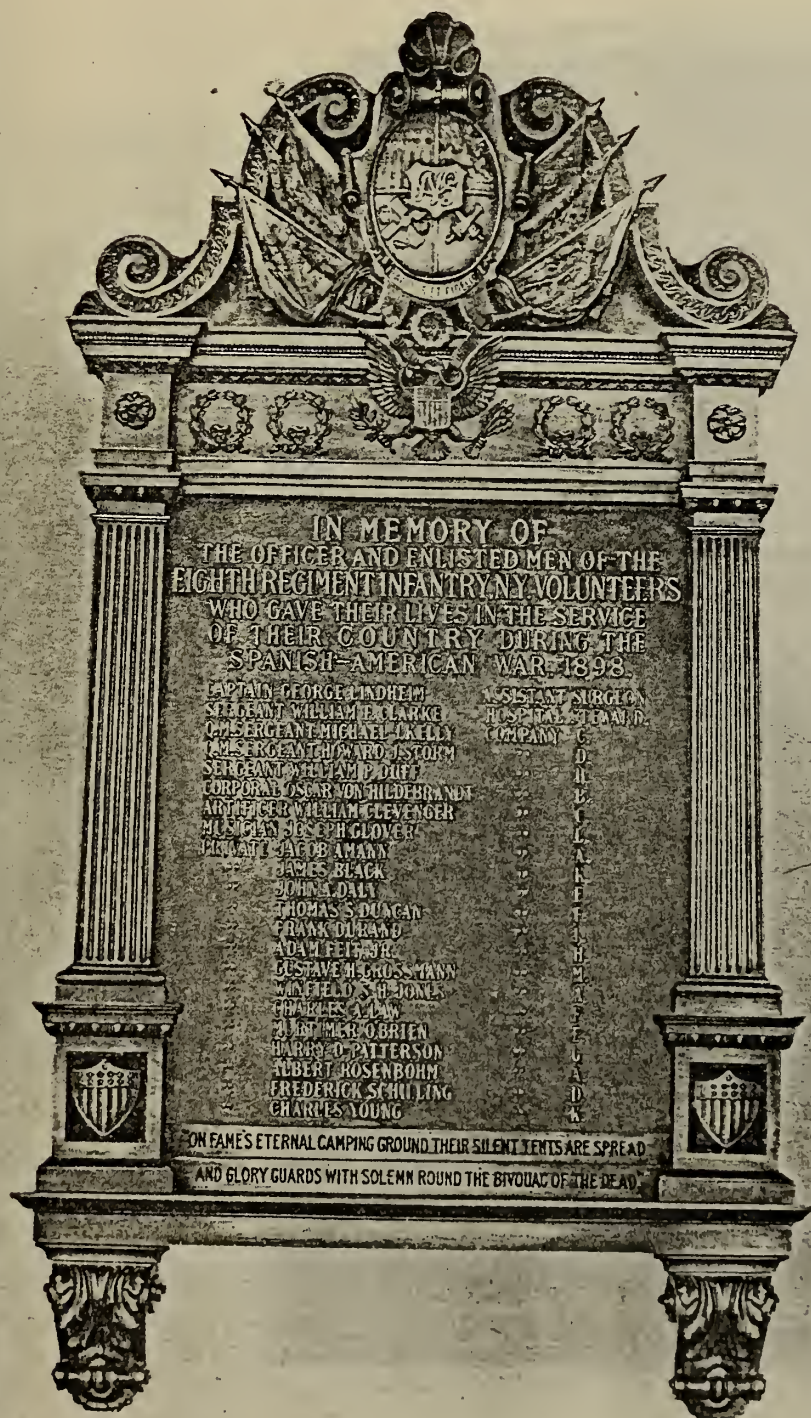 IN MEMORY OF
THE OFFICER AND ENLISTED MEN OF THE
EIGHTH REGIMENT INFANTRY, N.Y. VOLUNTEERS
WHO GAVE THEIR LIVES IN THE SERVICE
OF THEIR COUNTRY DURING THE
SPANISH-AMERICAN WAR. 1898.
CAPTAIN GEORGE LINDHEIM ASSISTANT SURGEON
SERGEANT WILLIAM F. CLARKE HOSPITAL STEWARD.
Q.M. SERGEANT MICHAEL J. KELLY COMPANY C.
Q.M. SERGEANT HOWARD J. STORM " D.
SERGEANT WILLIAM P. DUFF " H.
CORPORAL OSCAR VON HILDEBRANDT " B.
ARTIFICER WILLIAM CLEVENGER "
MUSICIAN JOSEPH GLOVER " L.
PRIVATE JACOB AMANN " A.
" JAMES BLACK " K.
" JOHN A. DALY " E
" THOMAS S. DUNCAN " F
" FRANK DURAND "
" ADAM FEIT, JR. " H
" GUSTAVE H. GROSSMANN " M.
" WINFIELD S. H. JONES " A
" CHARLES A. LAW " F
" MORTIMER O'BRIEN " E
" HARRY D. PATTERSON " G
" ALBERT ROSENBOHM " A.
" FREDERICK SCHILLING " D.
" CHARLES YOUNG " K.
"ON FAME'S ETERNAL CAMPING GROUND THEIR SILENT TENTS ARE SPREAD
AND GLORY GUARDS WITH SOLEMN ROUND THE BIVOUAC OF THE DEAD."